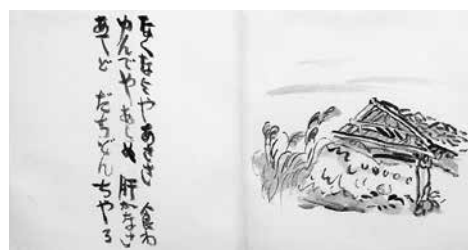 なくなよやあささ 食わ
ゆんでやあしぬ 肝かなさ
あしど だちどんちやる